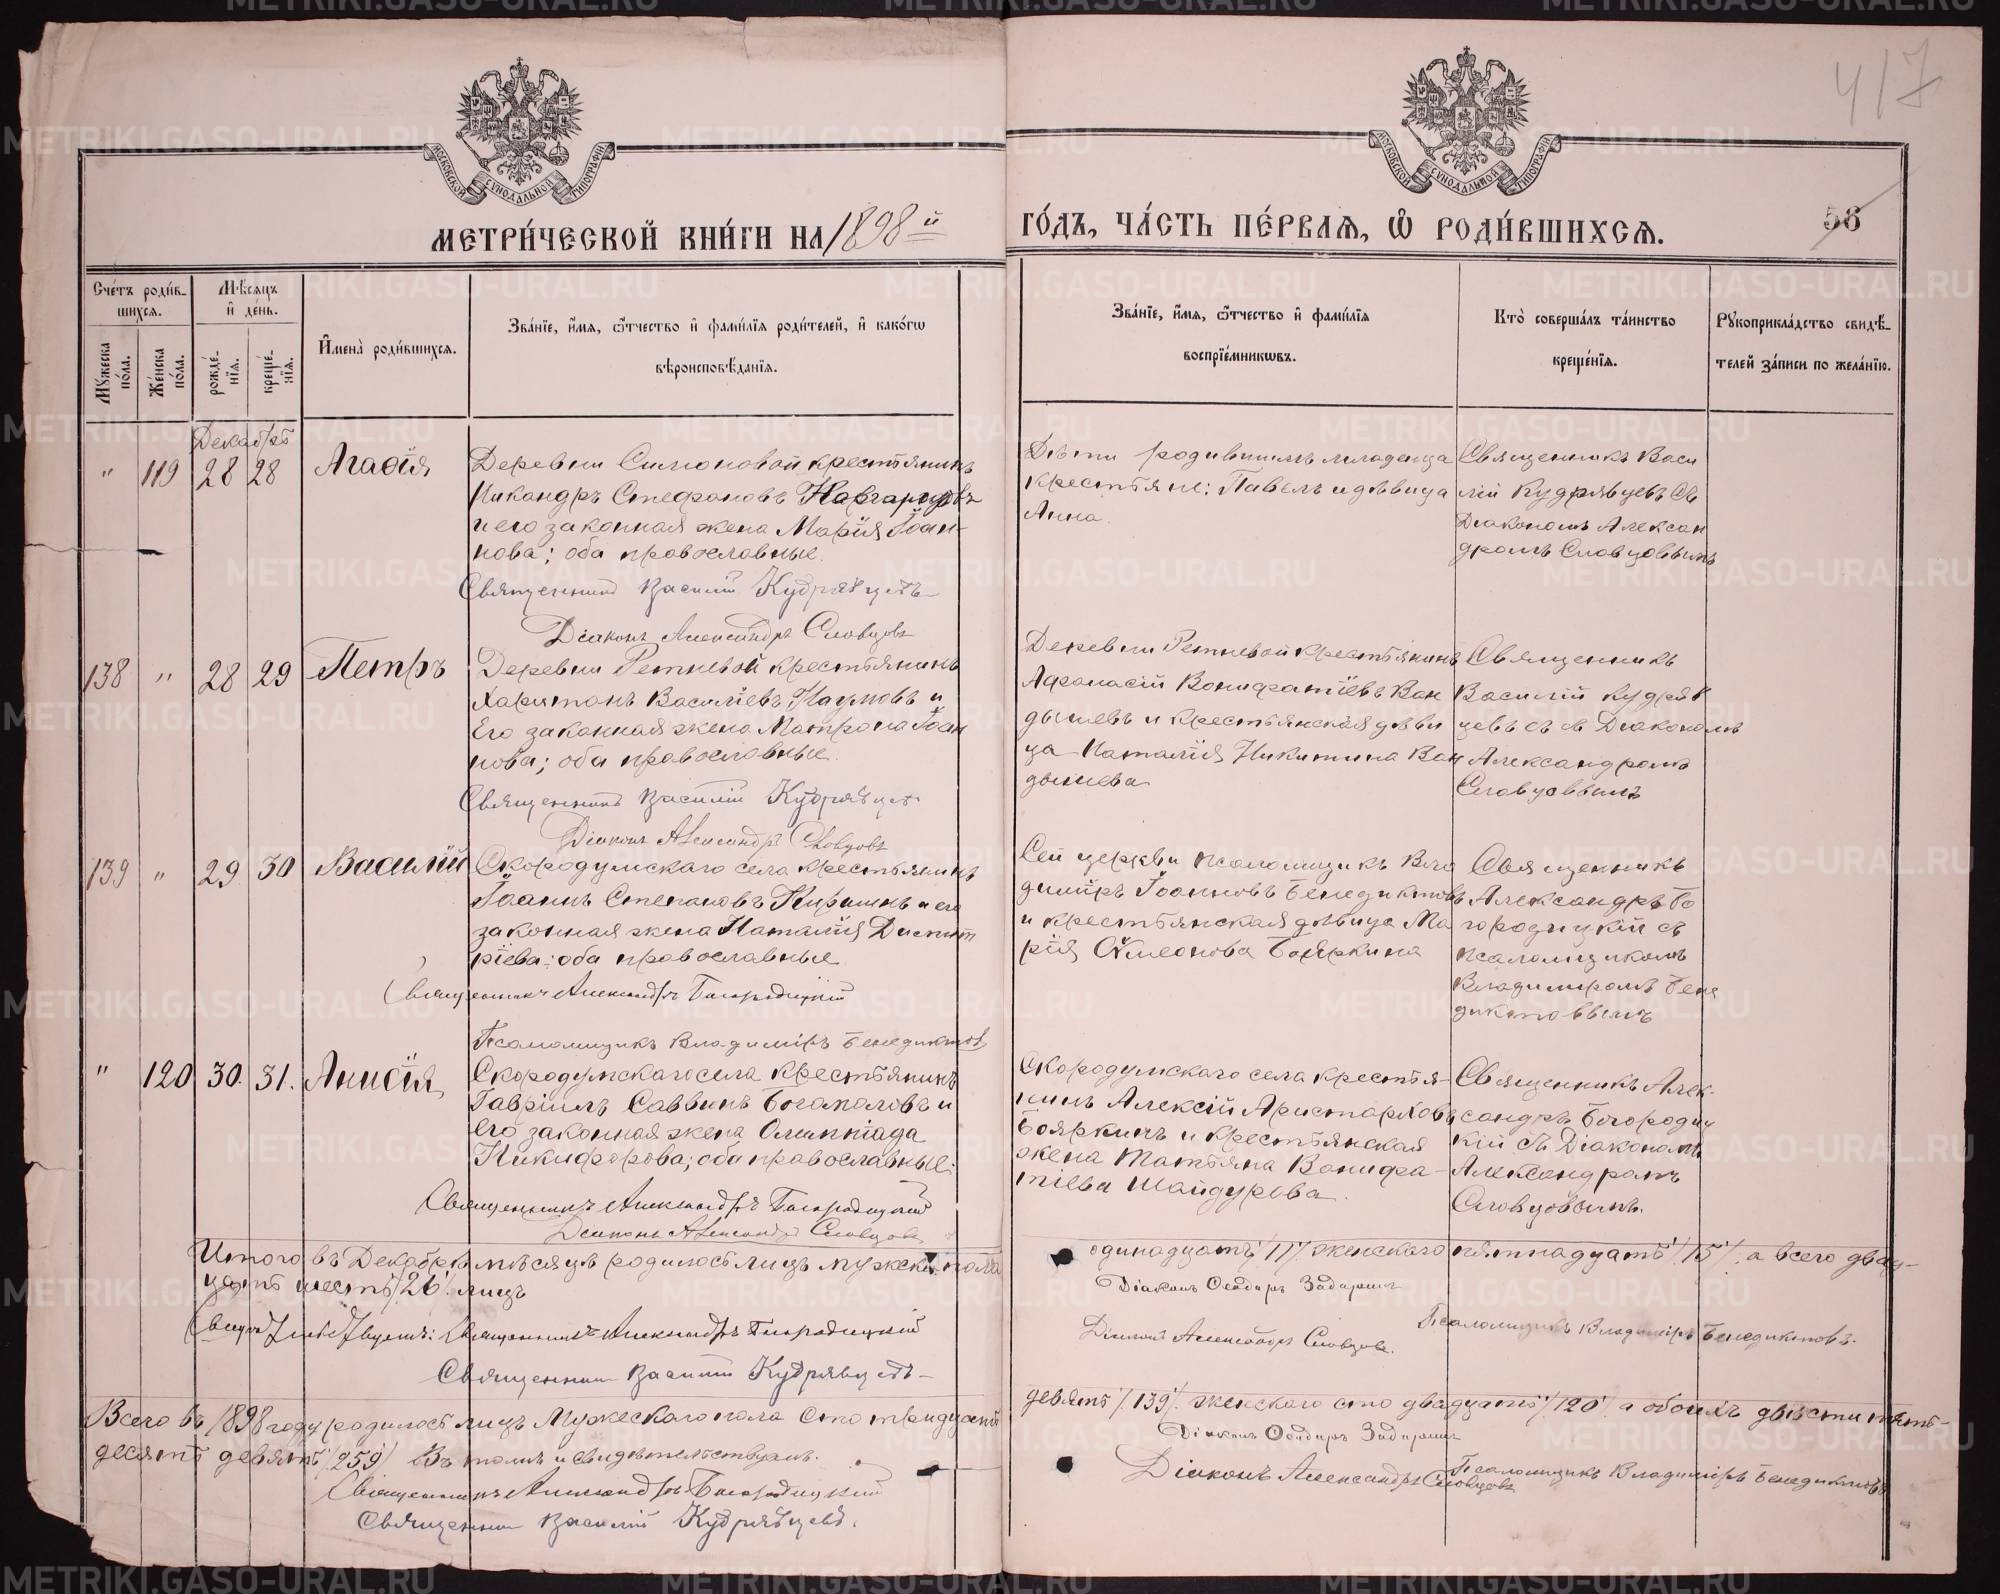 417
МОСКОВСКОЙ СУНОДАЛЬНОЙ ТИПОГРАФІИ
МОСКОВСКОЙ СУНОДАЛЬНОЙ ТИПОГРАФІИ
МЕТРИ́ЧЕСКОЙ КНИ́ГИ НА 1898й ГО́ДЪ, ЧА́СТЬ ПЕ́РВАѦ, Ѽ РОДИ́ВШИХСѦ.
58
Сче́тъ роди́в-
шихсѧ.
Мѣсѧцъ
и҆ де́нь.
Мꙋжеска по́ла.
Же́нска по́ла.
рожде́-
нїѧ.
креще́-
нїѧ.
И҆мена̀ роди́вшихсѧ.
Зва́нїе, и҆мѧ, ѻ҆́тчество и҆ фами́лїѧ роди́телей, и҆ како́гѡ
вѣроисповѣ́данїѧ.
Зва́нїе, и҆мѧ, ѻ҆́тчество и҆ фами́лїѧ
воспрїе́мникѡвъ.
Кто̀ соверша́лъ та́инство
креще́нїѧ.
Рꙋкоприкла́дство свидѣ́-
телей за́писи по жела́нїю.
Декабрь
" 119 28 28 Агафія
Деревни Симоновой крестьянинъ
Никандръ Стефановъ
и его законная жена Марія Іоан-
нова; оба православные.
Священникъ Василій Кудрявцевъ
Діаконъ Александръ Словцовъ
Дѣти родившимъ младенца
крестьяне: Павелъ и дѣвица
Анна.
Священникъ Васи
лій Кудрявцевъ съ
Діакономъ Алексан
дромъ Словцовымъ
138 " 28 29 Петръ
Деревни Ретневой крестьянинъ
Харитонъ Василіевъ Наумовъ и
Его законная жена Матрона Іоан
нова; оба православные.
Священникъ Василій Кудрявцевъ
Діаконъ Александръ Словцовъ
Деревни Ретневой крестьянинъ
Афанасій Вонифатіевъ Ван
дышевъ и крестьянская дѣви
ца Наталія Никитина Ван
дышева
Священникъ
Василій Кудряв
цевъ съ Діакономъ
Александромъ
Словцовымъ
139 " 29 30 Василій
Скородумскаго села крестьянинъ
Іоаннъ Степановъ и его
законная жена Наталія Димит
ріева; оба православные
Священникъ Александръ Богородицкій
Псаломщикъ Владиміръ Бенедиктовъ
Сей церкви псаломщикъ Вла
димиръ Іоанновъ Бенедиктовъ
и крестьянская дѣвица Ма
рія Симеонова Бояркина
Священникъ
Александръ Бо
городицкій съ
псаломщикомъ
Владимиромъ Бене
диктовымъ
" 120 30. 31. Анисія
Скородумскаго села крестьянинъ
Гавріилъ Саввинъ Богомоловъ и
его законная жена Олимпіада
Никифорова; оба православные.
Священникъ Александръ Богородицкій
Діаконъ Александръ Словцовъ
Скородумскаго села крестья-
нинъ Алексій Аристарховъ
Бояркинъ и крестьянская
жена Татьяна Вонифа-
тіева Шайдурова.
Священникъ Алек-
сандръ Богородиц
кій съ Діакономъ
Александромъ
Словцовымъ.
Итого въ Декабрѣ мѣсяцѣ родилось лицъ мужеска пола одинадцать /11/ женскаго пятнадцать /15/. а всего двад-
цать шесть /26/ лицъ
Діаконъ Ѳеодоръ
Священникъ Александръ Богородицкій
Діаконъ Александръ Словцовъ.
Псаломщикъ Владиміръ Бенедиктовъ.
Священникъ Василій Кудрявцевъ
Всего въ 1898 году родилось лицъ мужескаго пола сто тридцать девять /139/. женскаго сто двадцать /120/. а обоихъ двѣсти пять-
десятъ девять /259/ Въ томъ и свидѣтельствуемъ.
Діаконъ Ѳеодоръ
Священникъ Александръ Богородицкій
Діаконъ Александръ Словцовъ
Псаломщикъ Владиміръ Бенедиктовъ
Священникъ Василій Кудрявцевъ.
METRIKI.GASO-URAL.RU